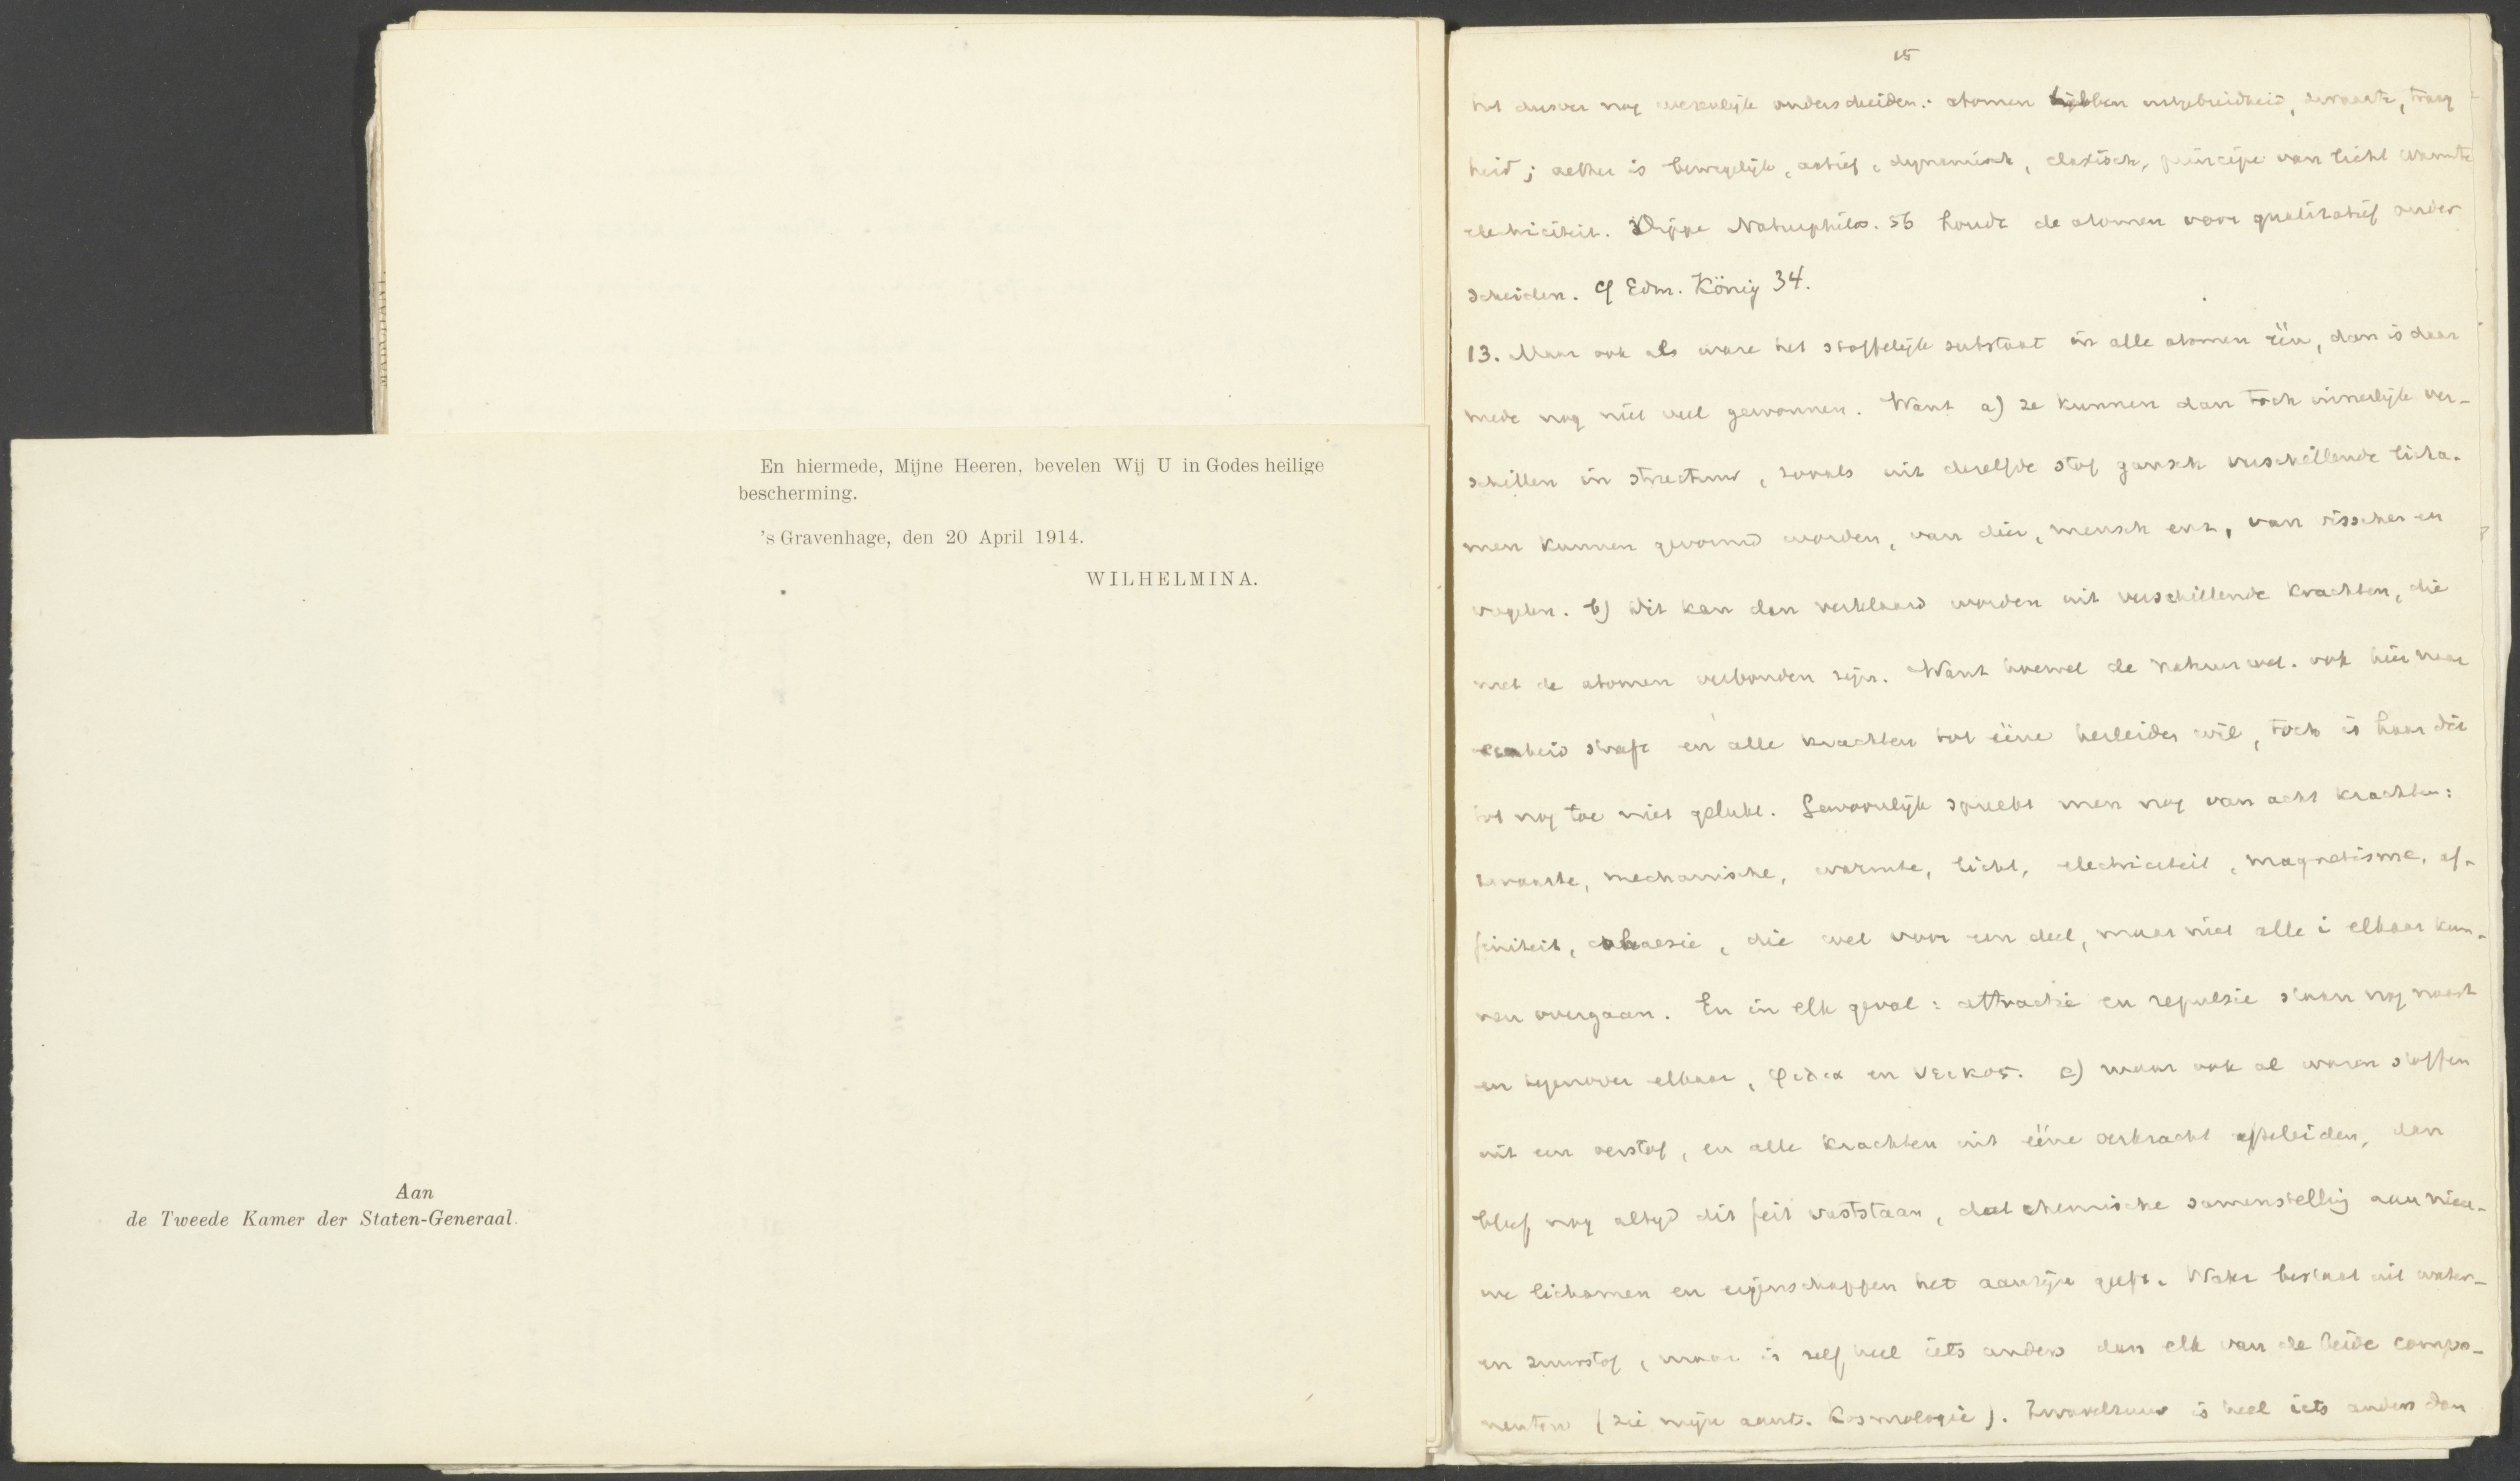 En hiermede, Mijne Heeren, bevelen Wij U in Godes heilige
bescherming.
's Gravenhage, den 20 April 1914.
WILHELMINA.
Aan
de Tweede Kamer der Staten-Generaal.
15
tot dusver nog werkelijk onderscheiden: atomen hebben uitgebreidheid, zwaarte, traag
heid; aether is bewegelijk, actief, dynamisch, elastisch, principe van licht warmte
electriciteit. Dippe Naturphilos. 56 houdt de atomen voor qualitatief onder
scheiden. Cf Edm. König 34.
13. Maar ook als ware het stoffelijk substraat in alle atomen één, dan is daar
mede nog niet veel gewonnen. Want a) ze kunnen dan toch innerlijk ver-
schillen in structuur, zooals uit dezelfde stof gansch verschillende licha-
men kunnen gevormd worden, van dier, mensch enz, van visschen en
vogelen. b) Dit kan dan verklaard worden uit verschillende krachten, die
met de atomen verbonden zijn. Want hoewel de natuurwet. ook hier naar
eenheid streeft en alle krachten tot ééne herleiden wil, toch is haar dit
tot nog toe niet gelukt. Gewoonlijk spreekt men nog van acht krachten:
zwaarte, mechanische, warmte, licht, electriciteit, magnetisme, af-
finiteit, cohaesie, die wel voor een deel, maar niet alle i elkaar kun-
nen overgaan. En in elk geval: attractie en repulsie staan nog naast
en tegenover elkaar, φιλια en νεικος. c) maar ook al waren stoffen
uit een oerstof, en alle krachten uit ééne oerkracht afteleiden, dan
bleef nog altijd dit feit vaststaan, dat chemische samenstelling aan nieu-
we lichamen en eigenschappen het aanzijn geeft. Water bestaat uit water-
en zuurstof, maar is zelf heel iets anders dan elk van de beide compo-
nenten (zie mijn aant. Cosmologie). Zwavelzuur is heel iets anders dan